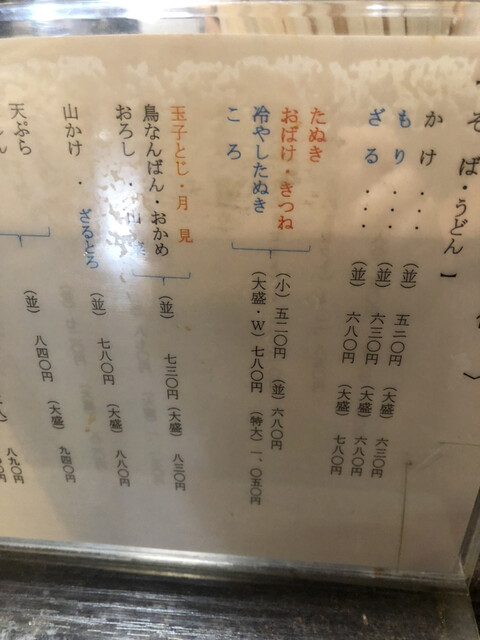 そば・うどん】
かけ・・・（並）五二〇円（大盛）六三〇円
もり・・・（並）六三〇円（大盛）六八〇円
ざる・・・（並）六八〇円（大盛）七八〇円
たぬき
おばけ・きつね
冷やしたぬき
ころ
（小）五二〇円（並）六八〇円
（大盛・W）七八〇円（特大）一、〇五〇円
玉子とじ・月見
鳥なんばん・おかめ
おろし・山菜
（並）七三〇円（大盛）八三〇円
山かけ・ざるとろ（並）七八〇円（大盛）八八〇円
天ぷら
（並）八四〇円（大盛）九四〇円